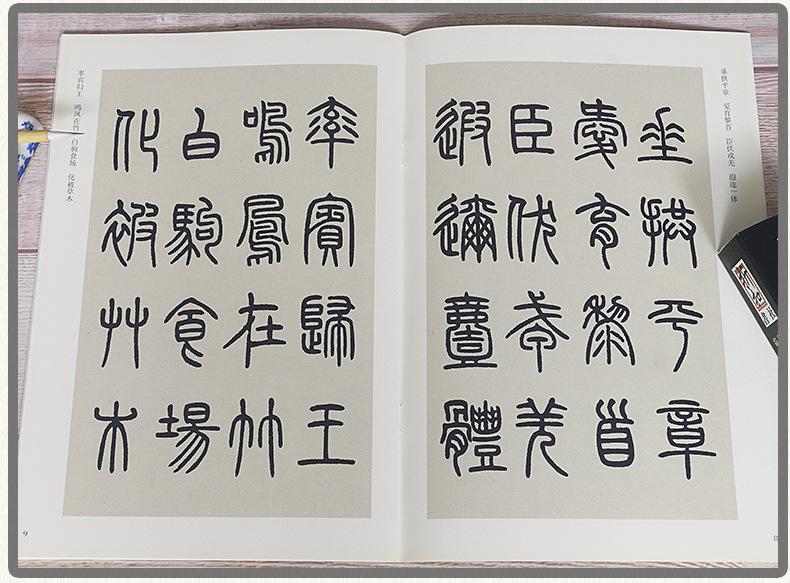 垂拱平章　爱育黎首　臣伏戎羌　遐迩一体
垂拱平章
愛育黎首
臣伏戎羌
遐邇壹體
8
率賓歸王
鳴鳳在竹
白駒食場
化被艸木
率宾归王　鸣凤在竹　白驹食场　化被草木
9